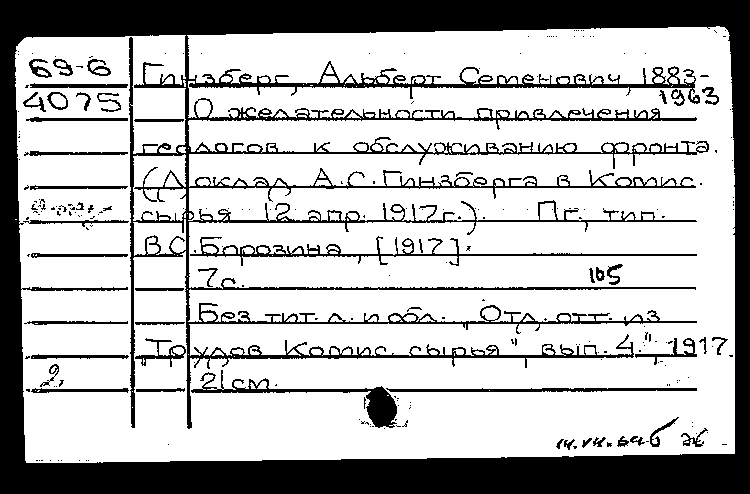 69-6 Гинзберг, Альберт Семенович, 1883-
4075 1963
О желательности привлечения
геологов к обслуживанию фронта.
(Доклад А.С. Гинзберга в Комис.
сырья 12 апр. 1917 г.). Пг., тип.
В.С. Борозина, [1917].
7 с. 105
Без тит. л. и обл. "Отд. отт. из
"Трудов Комис. сырья", вып. 4.", 1917.
2. 21 см.